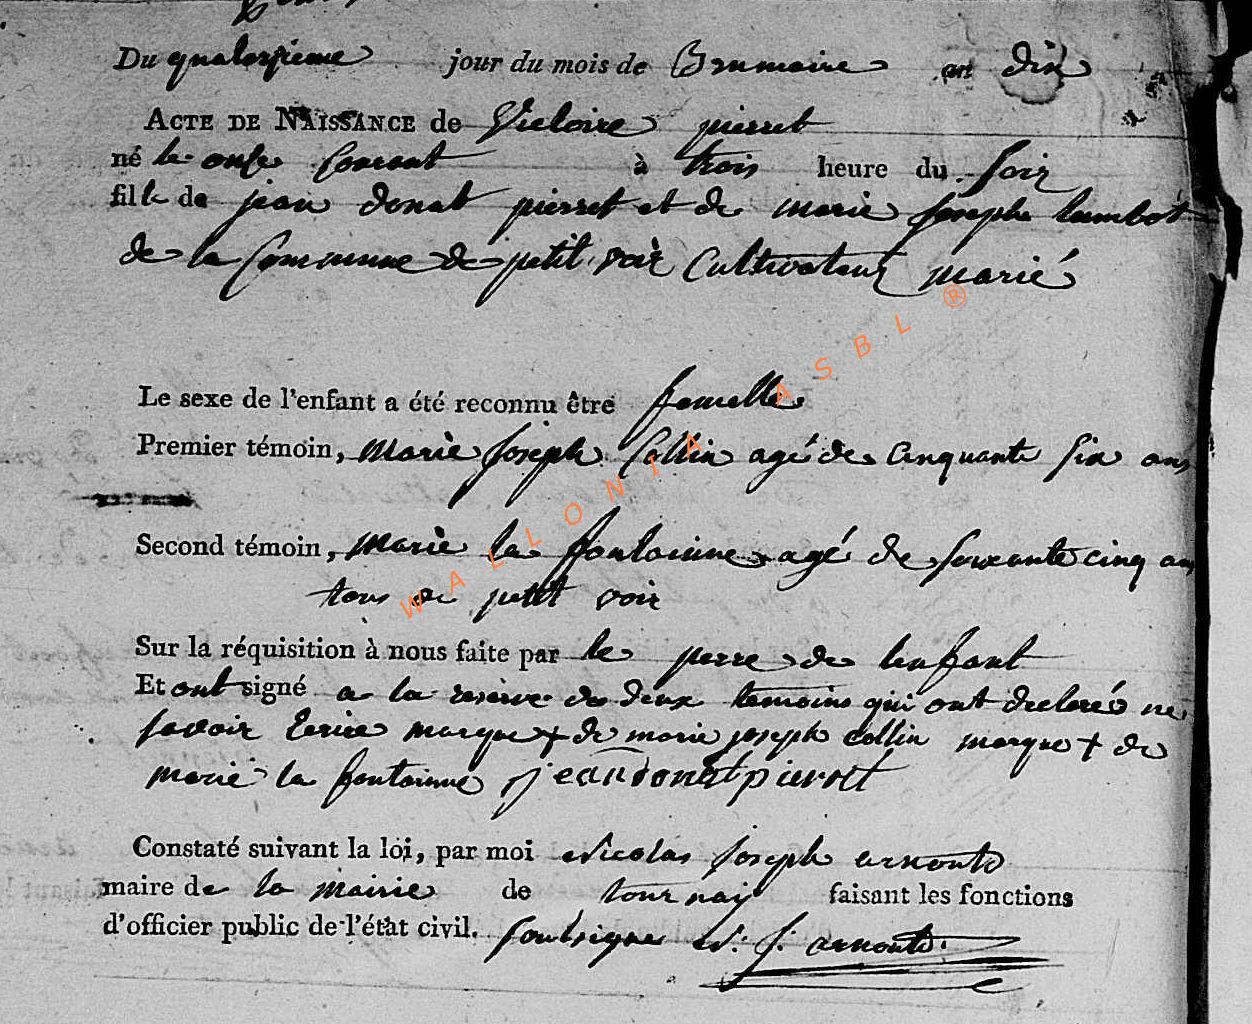 Du quatorsieme jour du mois de Brumaire an dix
ACTE DE NAISSANCE de Victoire pierret
né le onse Courant à trois heure du soir
fille de jean donat pierret et de marie josephe lambot
de la Commune de petit voir Cultivateur marié
Le sexe de l'enfant a été reconnu être femelle
Premier témoin, marie joseph Collin agé de Cinquante six ans
Second témoin, marie la fontainne agé de soixante cinq ans
tous de petit voir
Sur la réquisition à nous faite par le perre de lenfant
Et ont signé a la reserve de deux temoins qui ont declaré ne
savoir Ecrire marque + de marie joseph Collin marque + de
marie la fontainne jean donat pierret
Constaté suivant la loi, par moi Nicolas joseph arnould
maire de la mairie de tournay faisant les fonctions
d'officier public de l'état civil. soussigné N: J: arnould
WALLONIA ASBL ®